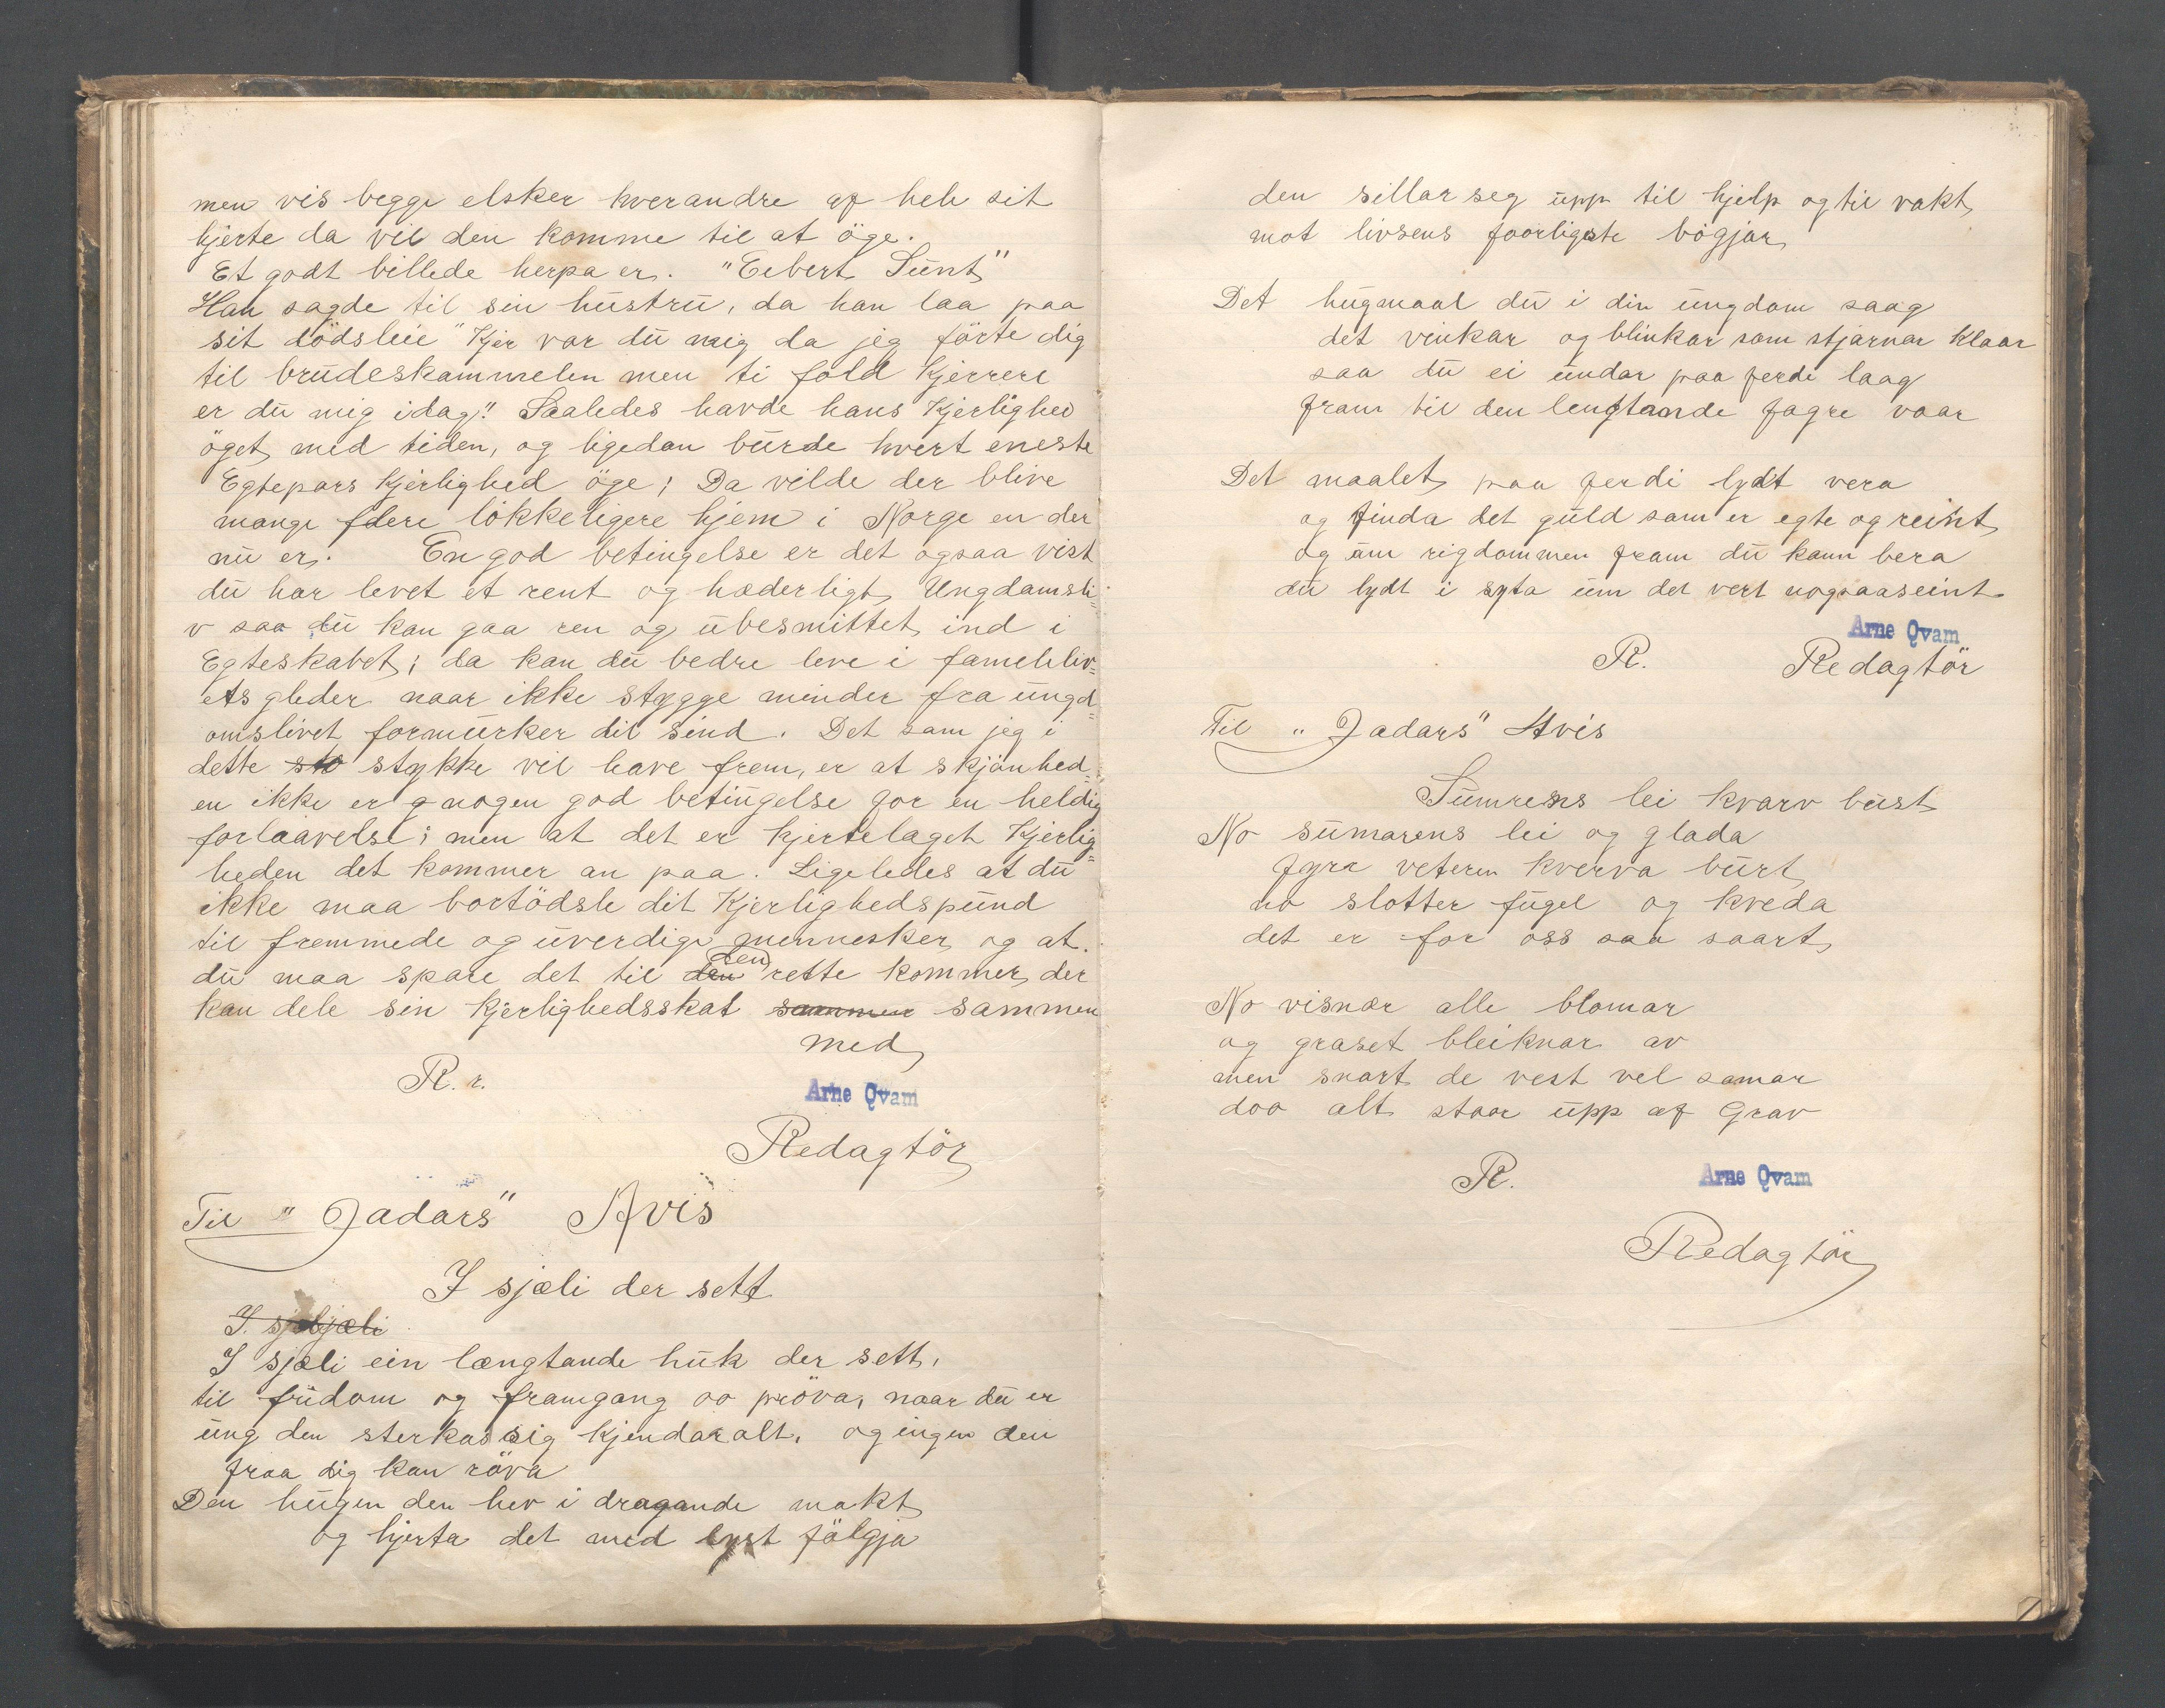 men vis begge elsker hverandre af hele sit
hjerte da vil den komme til at öge.
Et godt billede herpa er. "Eebert Sunt"
Han sagde til sin hustru, da han laa paa
sit dödsleie "Kjer var du mig da jeg förte dig
til brudeskammelen men ti fold Kjerrere
er du mig idag." Saaledes havde hans Kjerlighed
öget med tiden, og ligedan burde hvert eneste
Egtepars Kjerlighed öge; Da vilde der blive
mange flere lökkeligere hjem i Norge en der
nu er. En god betingelse er det ogsaa vist
du har levet et rent og hæderligt Ungdamsli=
v saa du kan gaa ren og ubesmittet ind i
Egteskabet; da kan du bedre leve i fameleliv=
ets gleder naar ikke stygge minder fra ungd=
omslivet formurker dit sind. Det sam jeg i
dette sto stykke vil have frem, er at skjönhed=
en ikke er g nogen god betingelse for en heldig
forlaavelse; men at det er hjertelaget Kjerlig=
heden det kommer an paa. Ligeledes at du
ikke maa bortödsle dit Kjerlighedspund
til fremmede og uverdige mennesker og at
du maa spare det til den den rette kommer der
kan dele sin Kjerlighedsskat sammen sammen
med
R. r.
Arne Qvam
Redagtör
Til "Jadars" Avis
I sjæli der sett
I. sjeljæli
I sjæli ein længtande huk der sett,
til fridom og framgang oo pröva, naar du er
ung den sterkas sig kjendar alt. og ingen den
fraa dig kan röva
Den hugen den hev i dragande makt
og hjerta det med lyst fölgja
den sillar seg upp til hjelp og til vakt
mot livsens foorligste bögjar
Det hugmaal du i din ungdom saag
det vinkar og blinkar som stjarnar klaar
saa du ei undar paa ferdi laag
fram til den lengtande fagre vaar
Det maalet paa ferdi lydt vera
og finda det guld som er egte og reint
og um rigdommen fram du kann bera
du lydt i syta um det vert nogsaaseint
Arne Qvam
R. Redagtör
Til "Jadars" Avis
Sumrens lei kvarv burt
No sumarens lei og glada
fyre veteren kverva burt
no slotter fugel og kveda
det er for oss saa saart
No visnar alle blomar
og graset bleiknar av
men snart de vest vel somar
doo alt staar upp af Grav
R. Arne Qvam
Redagtör